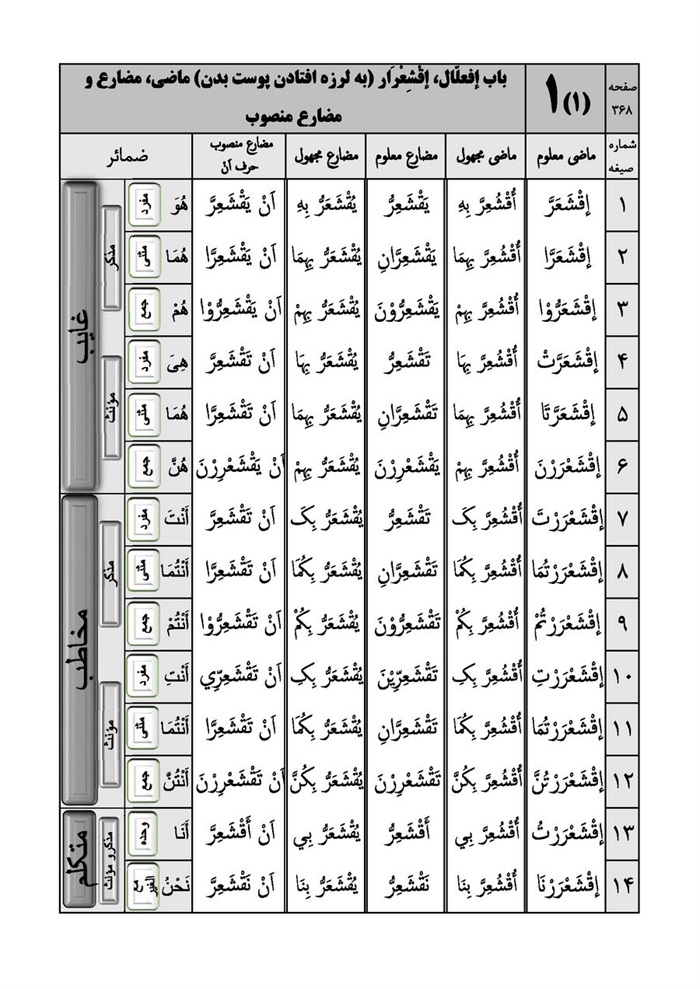 صفحه ۳۶۸ (۱) ۱ باب إفعلّال، إقْشِعْرَار (به لرزه افتادن پوست بدن) ماضی، مضارع و
مضارع منصوب
شماره صیغه ماضی معلوم ماضی مجهول مضارع معلوم مضارع مجهول مضارع منصوب حرف اَنْ ضمائر
۱ إقْشَعَرَّ أُقْشُعِرَّ بِهِ يَقْشَعِرُّ يُقْشَعَرُّ بِهِ اَنْ يَقْشَعِرَّ هُوَ مفرد مذکر غایب
۲ إقْشَعَرَّا أُقْشُعِرَّ بِهِمَا يَقْشَعِرَّانِ يُقْشَعَرُّ بِهِمَا اَنْ يَقْشَعِرَّا هُمَا مثنی
۳ إقْشَعَرُّوْا أُقْشُعِرَّ بِهِمْ يَقْشَعِرُّوْنَ يُقْشَعَرُّ بِهِمْ اَنْ يَقْشَعِرُّوْا هُمْ جمع
۴ إقْشَعَرَّتْ أُقْشُعِرَّ بِهَا تَقْشَعِرُّ يُقْشَعَرُّ بِهَا اَنْ تَقْشَعِرَّ هِيَ مفرد مؤنث
۵ إقْشَعَرَّتَا أُقْشُعِرَّ بِهِمَا تَقْشَعِرَّانِ يُقْشَعَرُّ بِهِمَا اَنْ تَقْشَعِرَّا هُمَا مثنی
۶ إقْشَعْرَرْنَ أُقْشُعِرَّ بِهِمْ يَقْشَعْرِرْنَ يُقْشَعَرُّ بِهِمْ اَنْ يَقْشَعْرِرْنَ هُنَّ جمع
۷ إقْشَعْرَرْتَ أُقْشُعِرَّ بِکَ تَقْشَعِرُّ يُقْشَعَرُّ بِکَ اَنْ تَقْشَعِرَّ أَنْتَ مفرد مذکر مخاطب
۸ إقْشَعْرَرْتُمَا أُقْشُعِرَّ بِکُمَا تَقْشَعِرَّانِ يُقْشَعَرُّ بِکُمَا اَنْ تَقْشَعِرَّا أَنْتُمَا مثنی
۹ إقْشَعْرَرْتُمْ أُقْشُعِرَّ بِکُمْ تَقْشَعِرُّوْنَ يُقْشَعَرُّ بِکُمْ اَنْ تَقْشَعِرُّوْا أَنْتُمْ جمع
۱۰ إقْشَعْرَرْتِ أُقْشُعِرَّ بِکِ تَقْشَعِرِّيْنَ يُقْشَعَرُّ بِکِ اَنْ تَقْشَعِرِّي أَنْتِ مفرد مؤنث
۱۱ إقْشَعْرَرْتُمَا أُقْشُعِرَّ بِکُمَا تَقْشَعِرَّانِ يُقْشَعَرُّ بِکُمَا اَنْ تَقْشَعِرَّا أَنْتُمَا مثنی
۱۲ إقْشَعْرَرْتُنَّ أُقْشُعِرَّ بِکُنَّ تَقْشَعْرِرْنَ يُقْشَعَرُّ بِکُنَّ اَنْ تَقْشَعْرِرْنَ أَنْتُنَّ جمع
۱۳ إقْشَعْرَرْتُ أُقْشُعِرَّ بِي أَقْشَعِرُّ يُقْشَعَرُّ بِي اَنْ أَقْشَعِرَّ أَنَا وحده مذکر و مؤنث متکلم
۱۴ إقْشَعْرَرْنَا أُقْشُعِرَّ بِنَا نَقْشَعِرُّ يُقْشَعَرُّ بِنَا اَنْ نَقْشَعِرَّ نَحْنُ مع الغیر